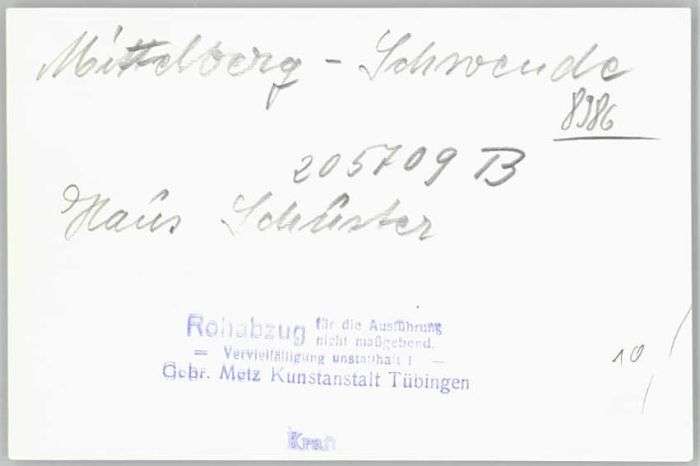 Mittelberg - Schwende
8986
205709 B
Haus Schuster
Rohabzug für die Ausführung
nicht maßgebend.
= Vervielfältigung unstatthaft ! =
Gebr. Metz Kunstanstalt Tübingen
10